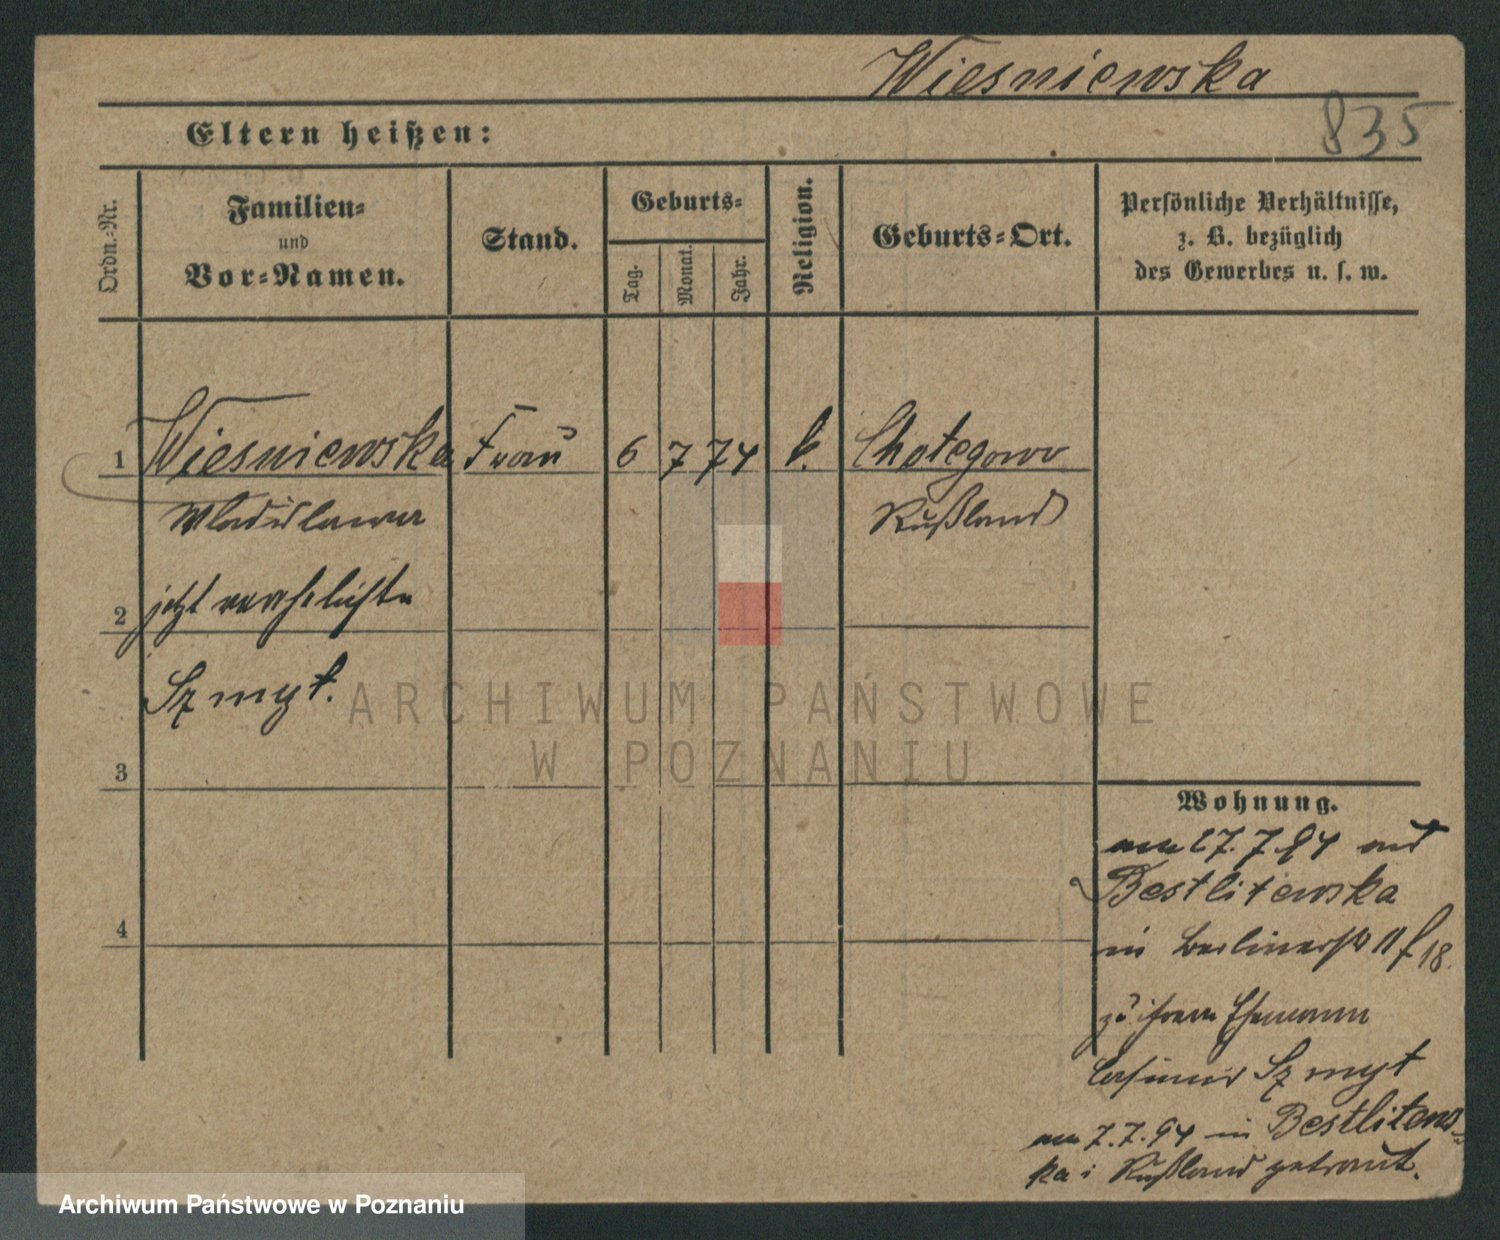 Wiesniewska
835
Eltern heißen:
Ordn.-Nr.
Familien-
und
Vor-Namen.
Stand.
Geburts-
Tag.
Monat.
Jahr.
Religion.
Geburts-Ort.
Persönliche Verhältnisse,
z. B. bezüglich
des Gewerbes u. s. w.
1 Wiesniewska Frau 6 7 74 k. Chotegowo
Wladislawa Rußland
2 jetzt verehelichte
Szmyt.
ARCHIWUM PAŃSTWOWE
W POZNANIU
3
Wohnung.
am 27. 7. 94 aus
Bestlitewska
4
in Berlinerstr 11 f 18.
zu ihrem Ehemann
Casimir Szmyt
am 7. 7. 94 in Bestlitews-
ka i Rußland getraut.
Archiwum Państwowe w Poznaniu